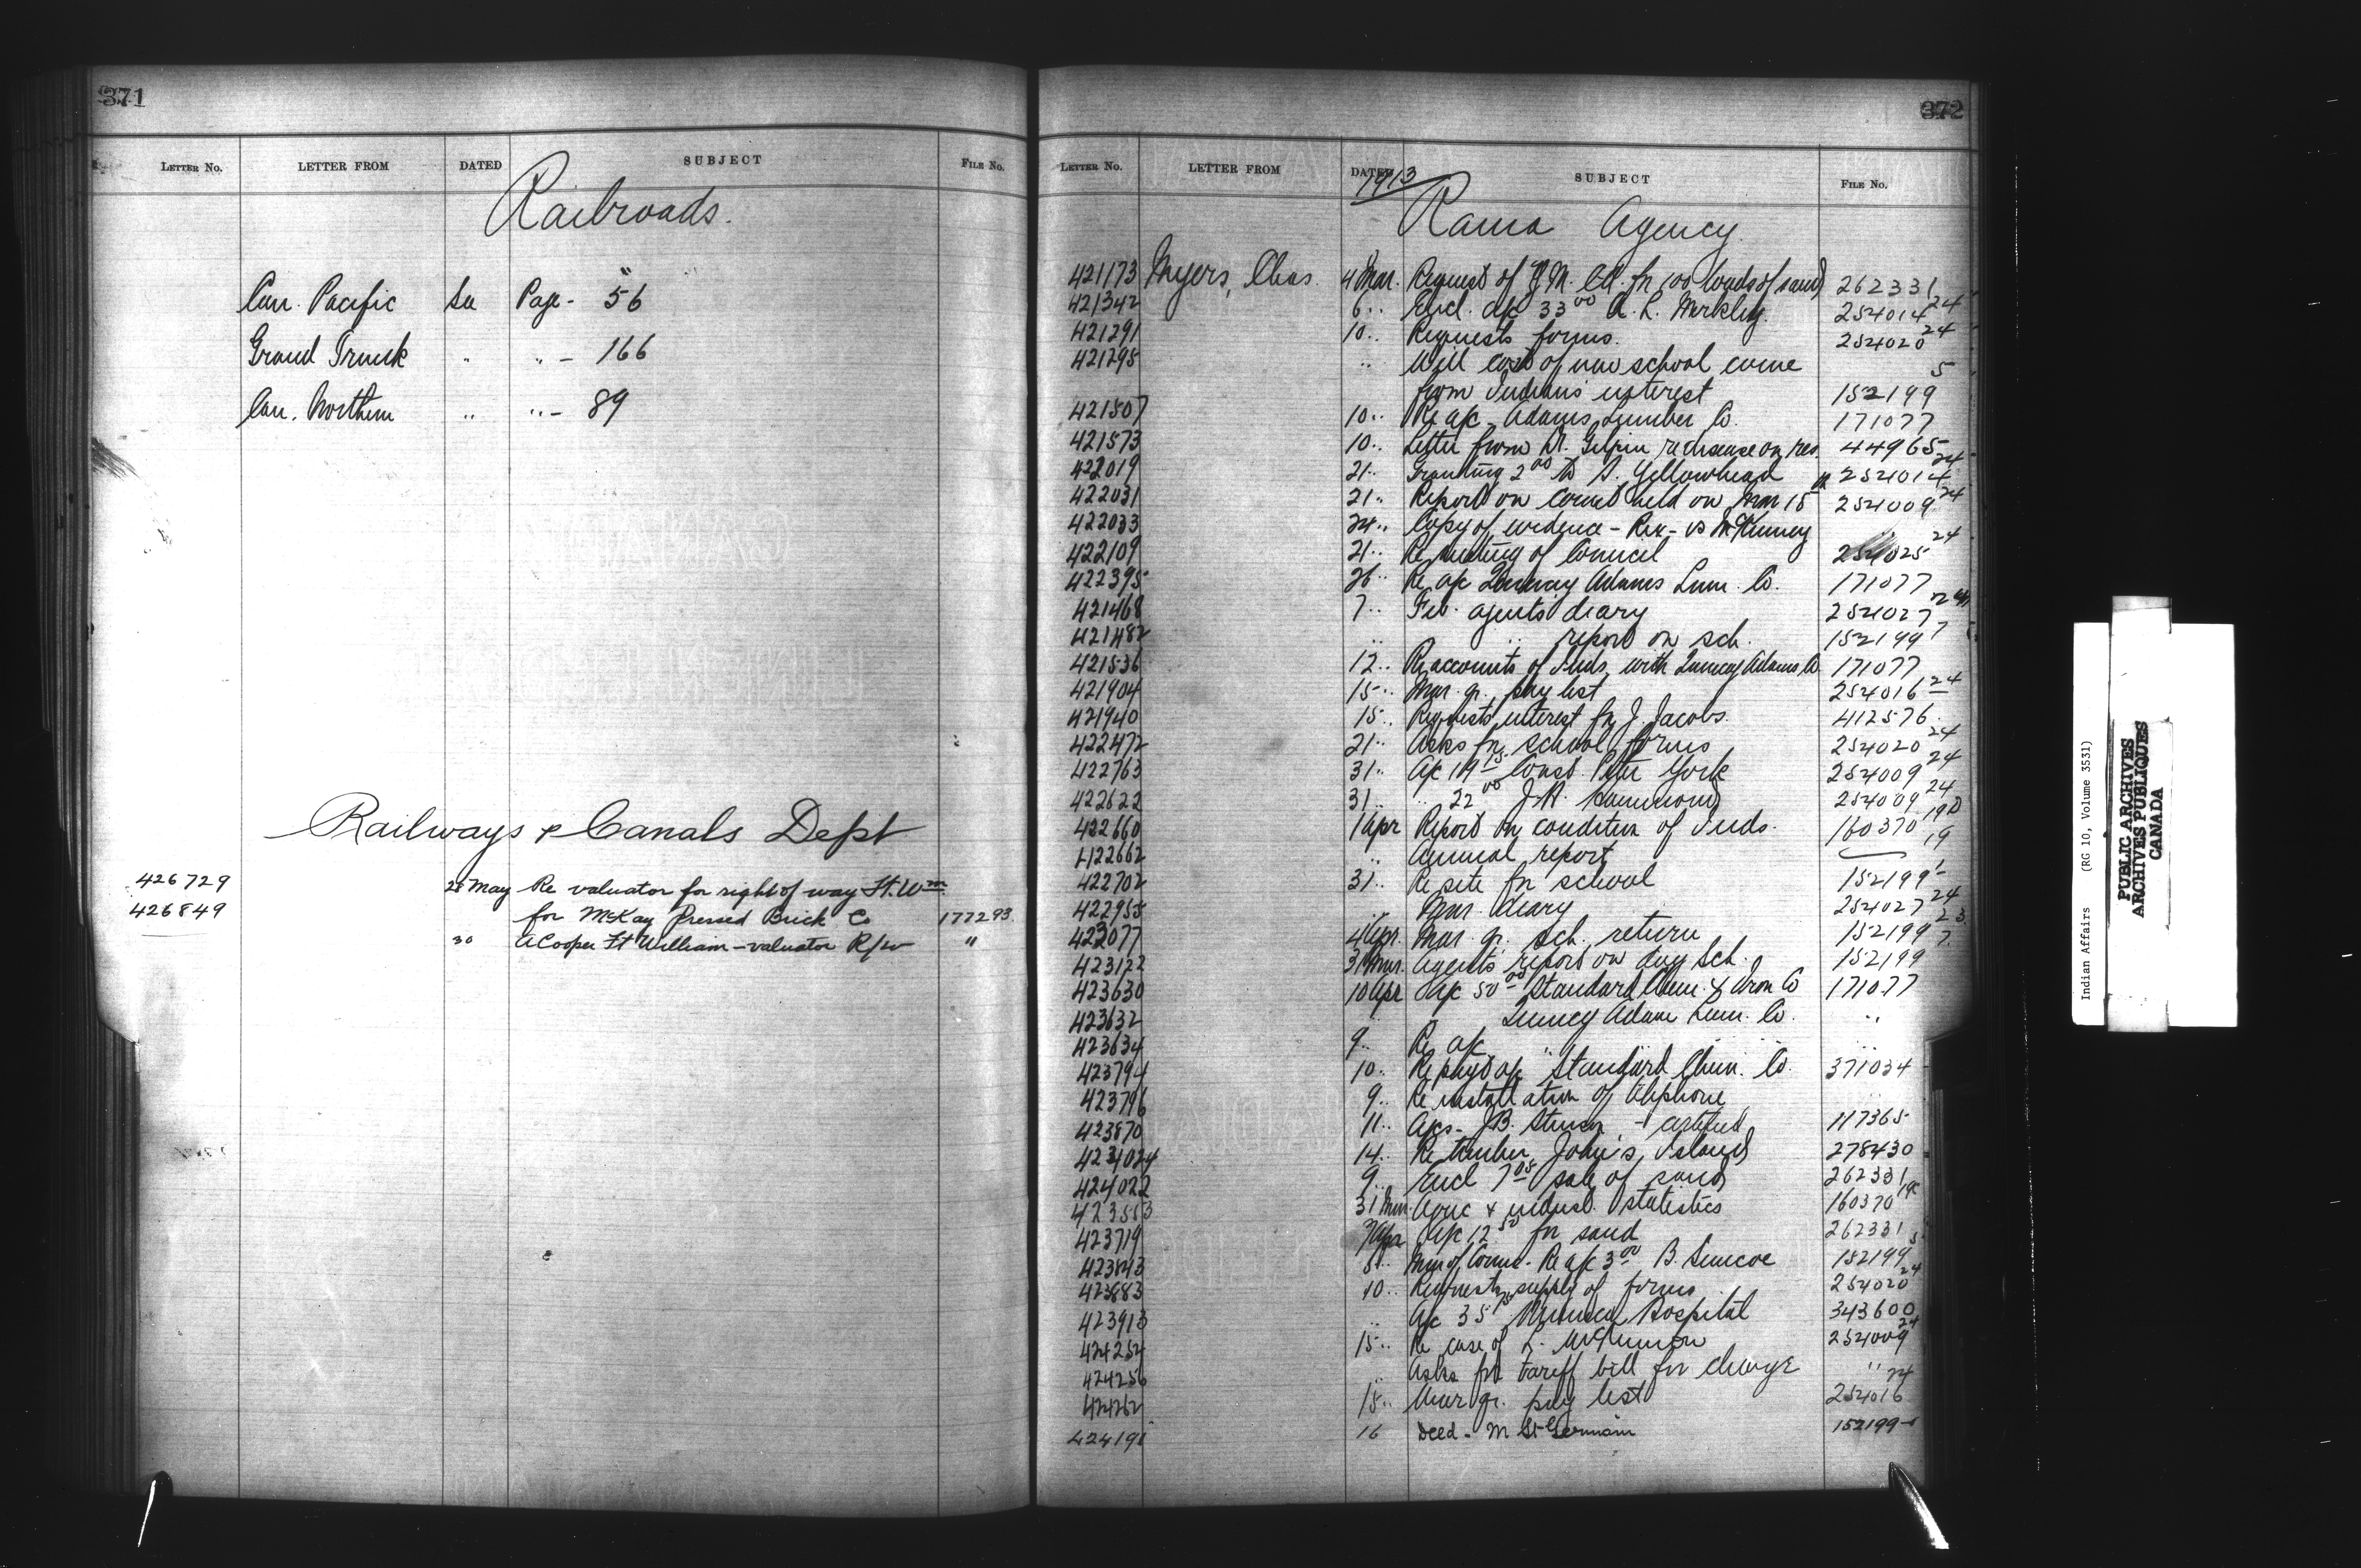 371
LETTER NO. LETTER FROM DATED SUBJECT FILE NO.
Railroads.
Can. Pacific See Page - 56
Grand Trunk " " - 166
Can. Northern " " - 89
Railways & Canals Dept
426729 28 May Re valuator for right of way Ft. Wm
426849 for McKay Pressed Brick Co 177293
30 A Cooper Ft William - valuator R/w "
372
LETTER NO. LETTER FROM DATED SUBJECT FILE NO.
1913
Rama Agency
421173 Myers, Chas. 4 Mar. Request of for 100 loads of sand 262331
421342 6 " Encl. a/c 33 00 A. L. Markley. 254014 24
421291 10 " Requests forms. 254020 24
421295 " Will cost of new school come
from Indians interest 152199 5
421507 10 " Re a/c Adams Lumber Co. 171077
421573 10 " Letter from Dr. Gilpin re disease on res. 44965
422019 21 " Granting 2 00 to S. Yellowhead 254014 24
422031 21 " Report on council held on Mar 15 254009 24
422033 24 " Copy of evidence - Rex - vs McKinney
422109 21 " Re meeting of Council 254025 24
422395 26 " Re a/c Quincy Adams Lum. Co. 171077
421468 7 " Feb. agents diary 254027 24
421482 " " report on sch. 152199 7
421536 12 " Re accounts of Inds. with Quincy Adams Co 171077
421904 15 " Mar. qr. pay list 254016 24
421940 15 " Requests interest for J. Jacobs. 412576
422472 21 " Asks for school forms 254020 24
422763 31 " a/c Const. Peter York 254009 24
422622 31 " " 22 00 J. H. Hammond 254009 24
422660 1 Apr Report on condition of Inds. 160370 19D
422662 " Annual report 19
422702 31 " Re site for school 152199
422955 Mar. diary 254027 24
423077 4 Apr. Mar. qr. sch. return 152199
423122 31 Mar. Agents report on day Sch. 152199
423630 10 Apr a/c 50 00 Standard Chem. & Iron Co 171077
423632 " Quincy Adams Lum. Co. "
423634 9 " Re a/c " " " "
423794 10 " Re payt a/c Standard Chem. Co. 371034
423796 9 " Re installation of telephone
423870 11 " Apcs - J.B. Stinson - certified 117365
424024 14 " Re timber John's Island 278430
424022 9 " Encl 7 05 sale of sand 262331
423553 31 Mar. Agric & indust. statistics 160370 19C
423719 a/c 12 50 for sand 262331
423843 8 " Min of Counc. Re a/c 3 00 B. Simcoe 152199 5
423883 10 " Requests supply of forms 254020 24
423913 " a/c 35 Hospital 343600
424254 15 " Re case of 254009 24
424256 " Asks for tariff bill for charge "
424262 15 " Mar qr. pay list 254016 24
424191 16 Deed - M St Germain 152199-1
Indian Affairs (RG 10, Volume 3531)
PUBLIC ARCHIVES
ARCHIVES PUBLIQUES
CANADA